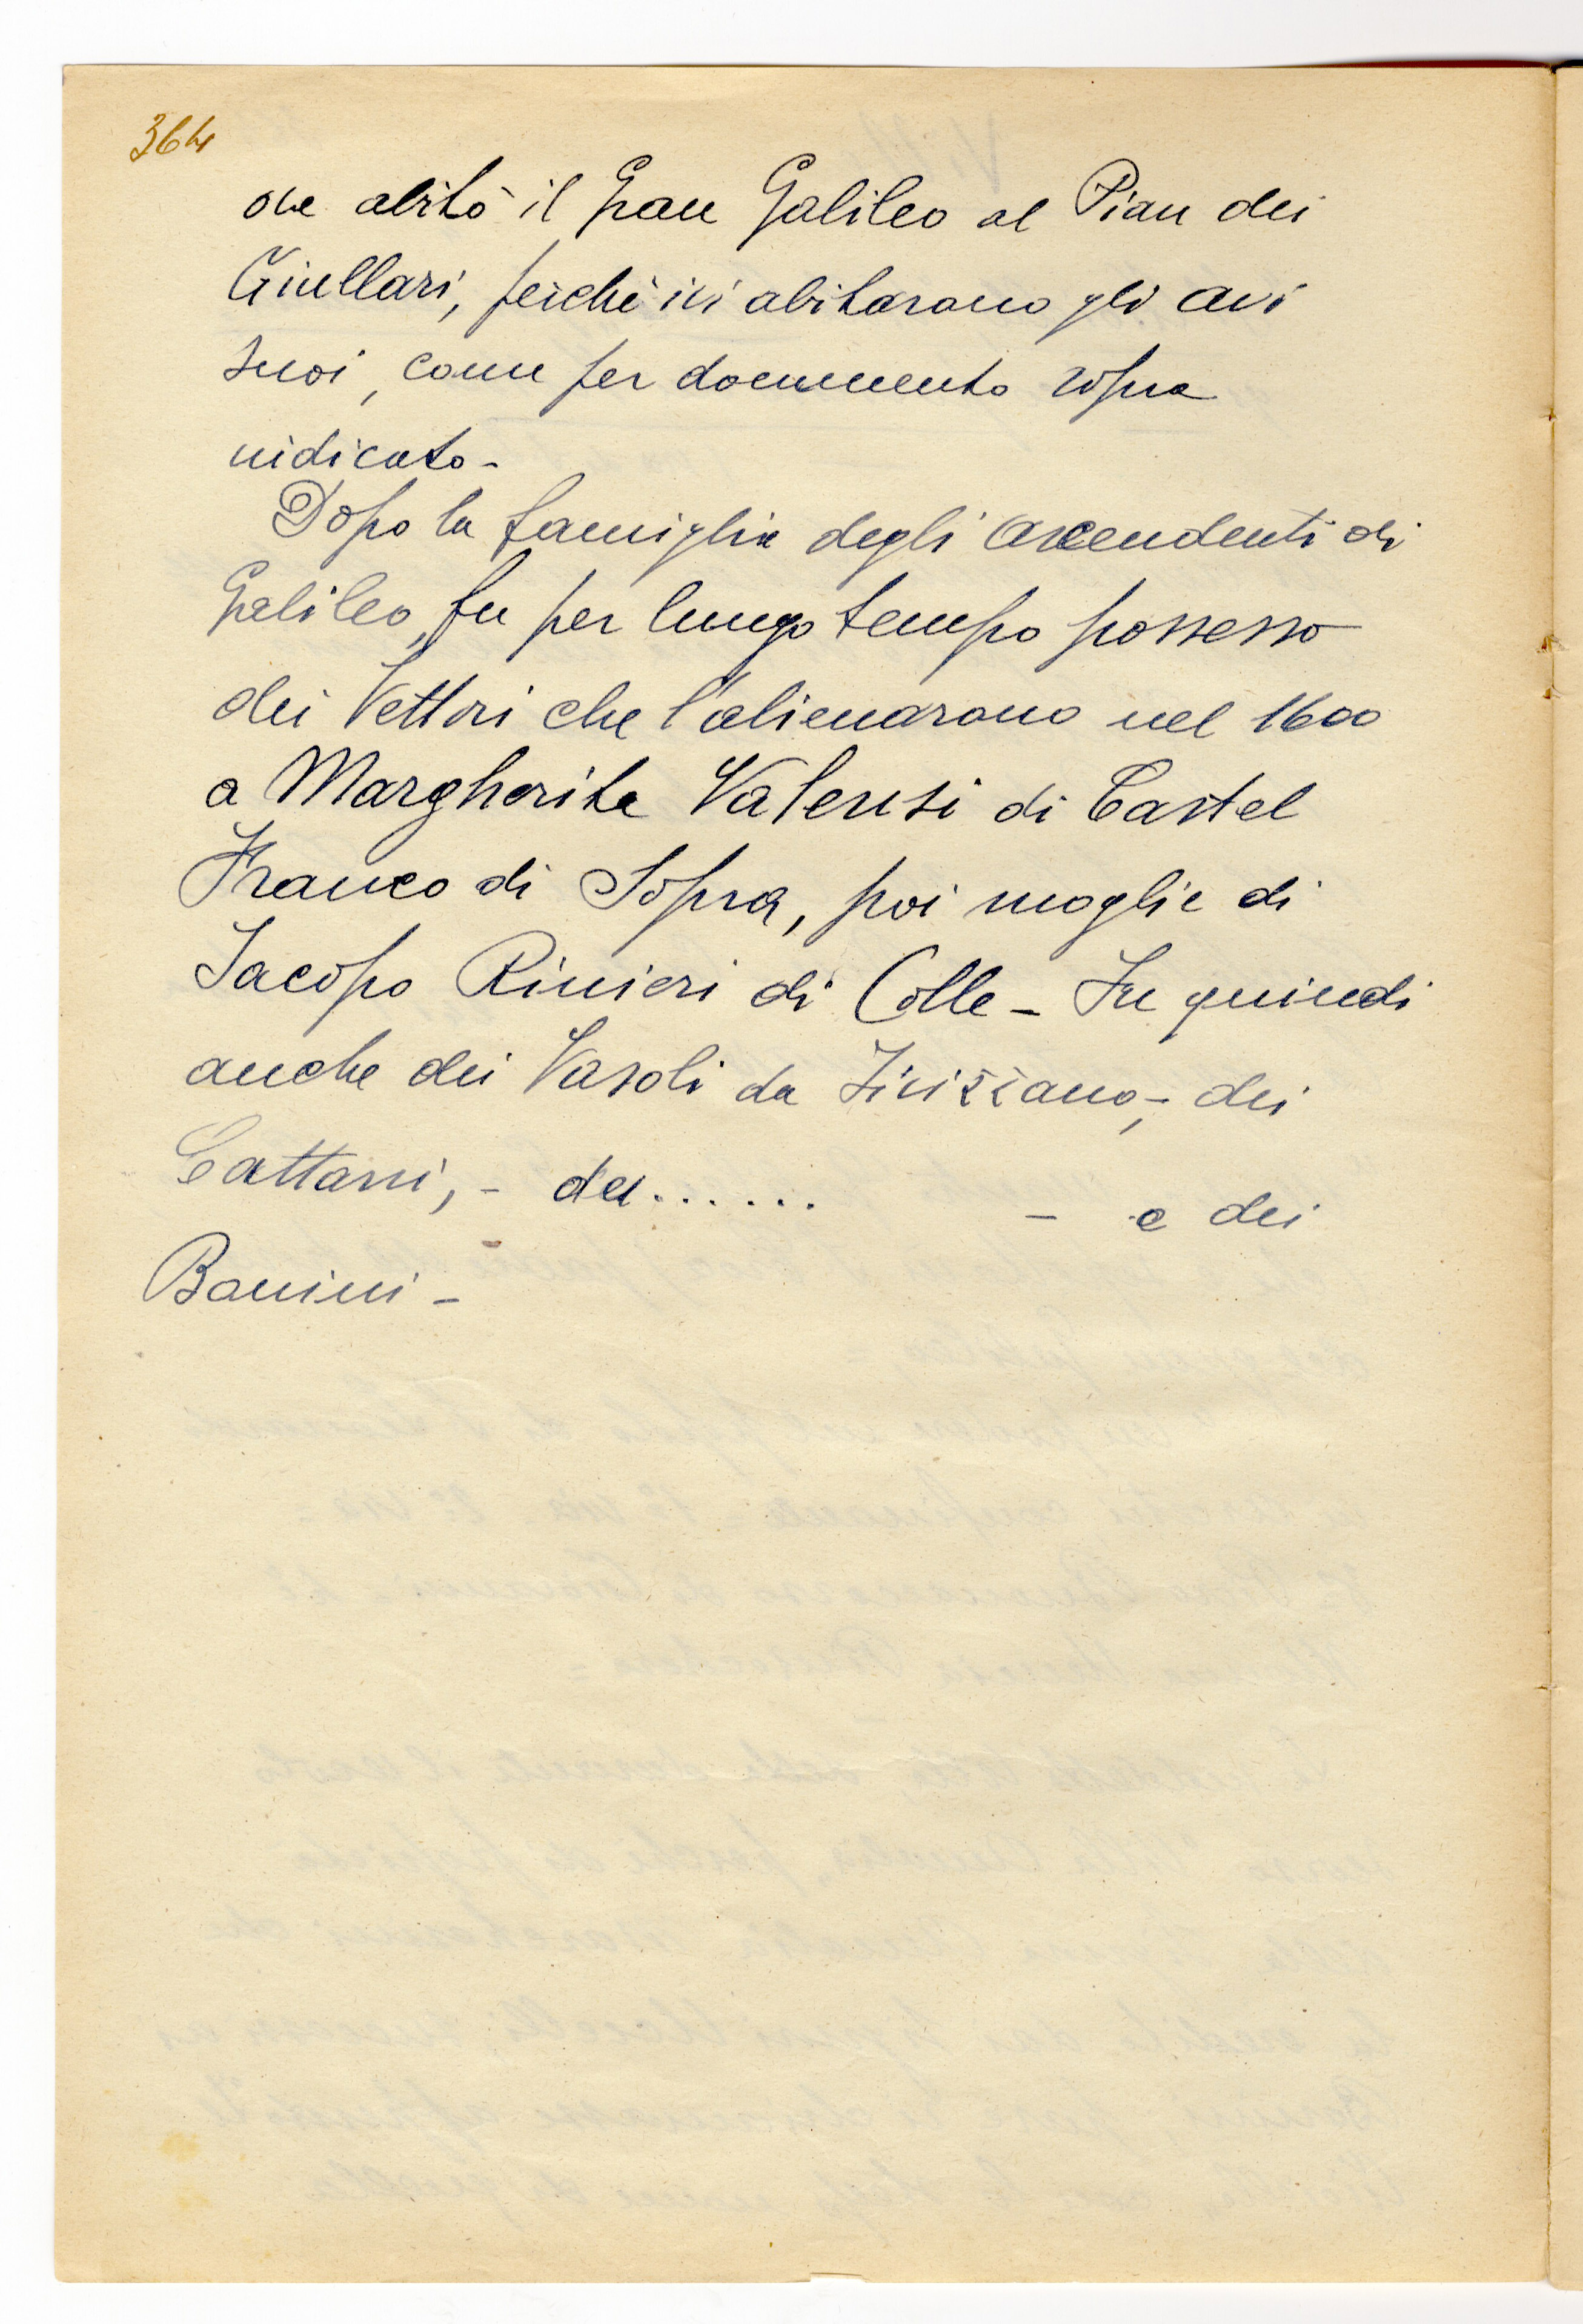 364
ove abitò il Gran Galileo al Pian dei
Giullari, perchè ivi abitarono gli avi
suoi, come per documento sopra
indicato -
Dopo la famiglia degli ascendenti di
Galileo, fu per lungo tempo possesso
dei Vettori che l'alienarono nel 1600
a Margherita Valensi di Castel
Franco di Sopra, poi moglie di
Jacopo Rinieri di Colle - Fu quindi
anche dei Vasoli da Fivizzano, - dei
Cattani, - dei...... - e dei
Banini -